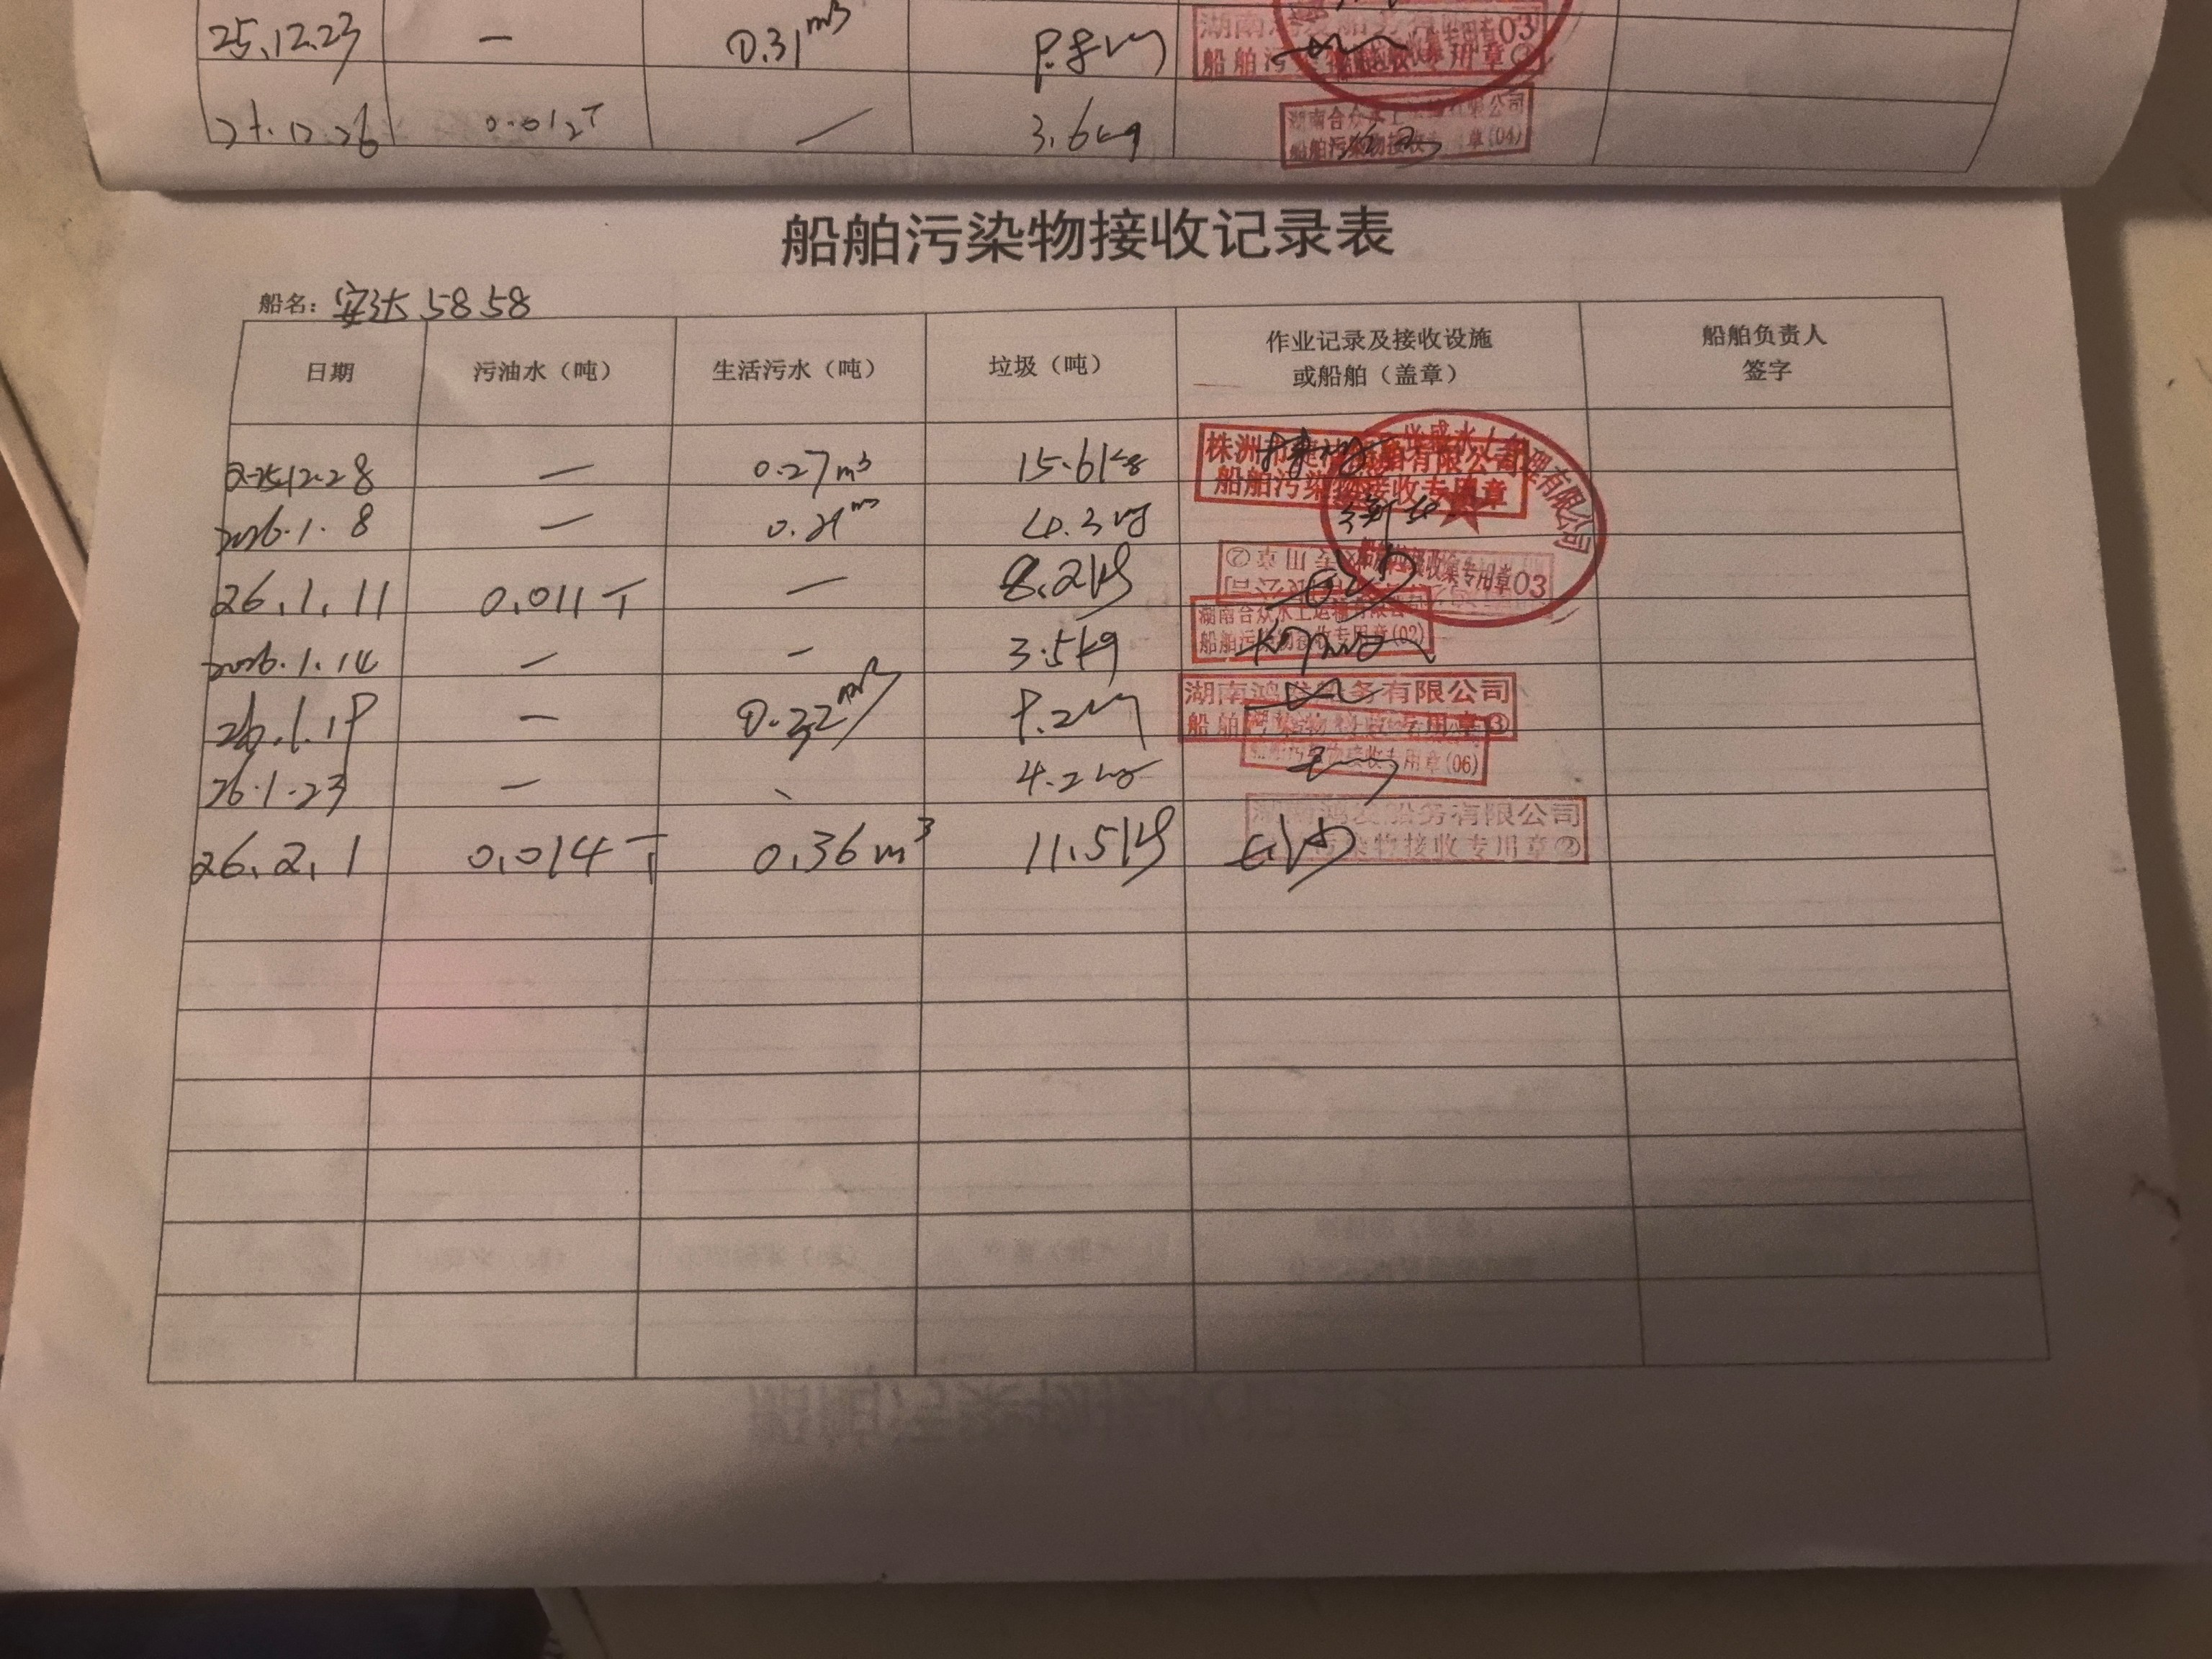 25.12.23 — 0.31m³ 9.8kg
25.12.26 0.012T — 3.6kg
湖南合众水上运输有限公司
船舶污染物接收专用章(04)
船舶污染物接收记录表
船名：安达5858
日期 污油水（吨） 生活污水（吨） 垃圾（吨） 作业记录及接收设施或船舶（盖章） 船舶负责人签字
2025.12.28 — 0.27m³ 15.61kg
株洲市 有限公司
船舶污染物接收专用章
水上 理有限公司
2026.1.8 — 0.21m³ 4.3kg
收集专用章03
26.1.11 0.011T — 8.2kg
2026.1.14 — — 3.5kg
湖南合众水上运输有限公司
船舶污染物接收专用章(02)
26.1.19 — 0.32m³ 9.2kg
湖南鸿发船务有限公司
船舶污染物接收专用章③
26.1.23 — 、 4.2kg
船舶污染物接收专用章(06)
26.2.1 0.014T 0.36m³ 11.5kg
湖南鸿发船务有限公司
污染物接收专用章②